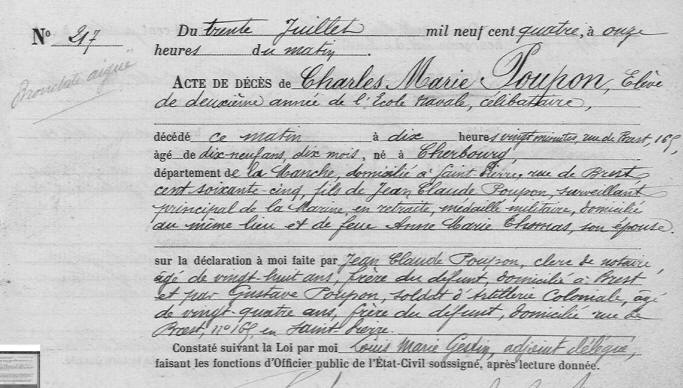 Du trente Juillet mil neuf cent quatre, à onze
No 217
heures du matin.
Bronchite aiguë
ACTE DE DÉCÈS de Charles Marie Poupon, Élève
de deuxième année de l'Ecole Navale, célibataire,
décédé ce matin à dix heures vingt minutes, rue de Brest, 165,
âgé de dix-neuf ans, dix mois, né à Cherbourg,
département de la Manche, domicilié à Saint Pierre, rue de Brest
cent soixante cinq, fils de Jean Claude Poupon, surveillant
principal de la Marine, en retraite, médaillé militaire, domicilié
au même lieu et de feue Anne Marie Thomas, son épouse.
sur la déclaration à moi faite par Jean Claude Poupon, clerc de notaire,
âgé de vingt huit ans, frère du défunt, domicilié à Brest
et par Gustave Poupon, soldat d'Artillerie Coloniale, âgé
de vingt-quatre ans, frère du défunt, domicilié rue de
Brest, n° 165, en Saint Pierre.
Constaté suivant la Loi par moi Louis Marie adjoint délégué,
faisant les fonctions d'Officier public de l'État-Civil soussigné, après lecture donnée.